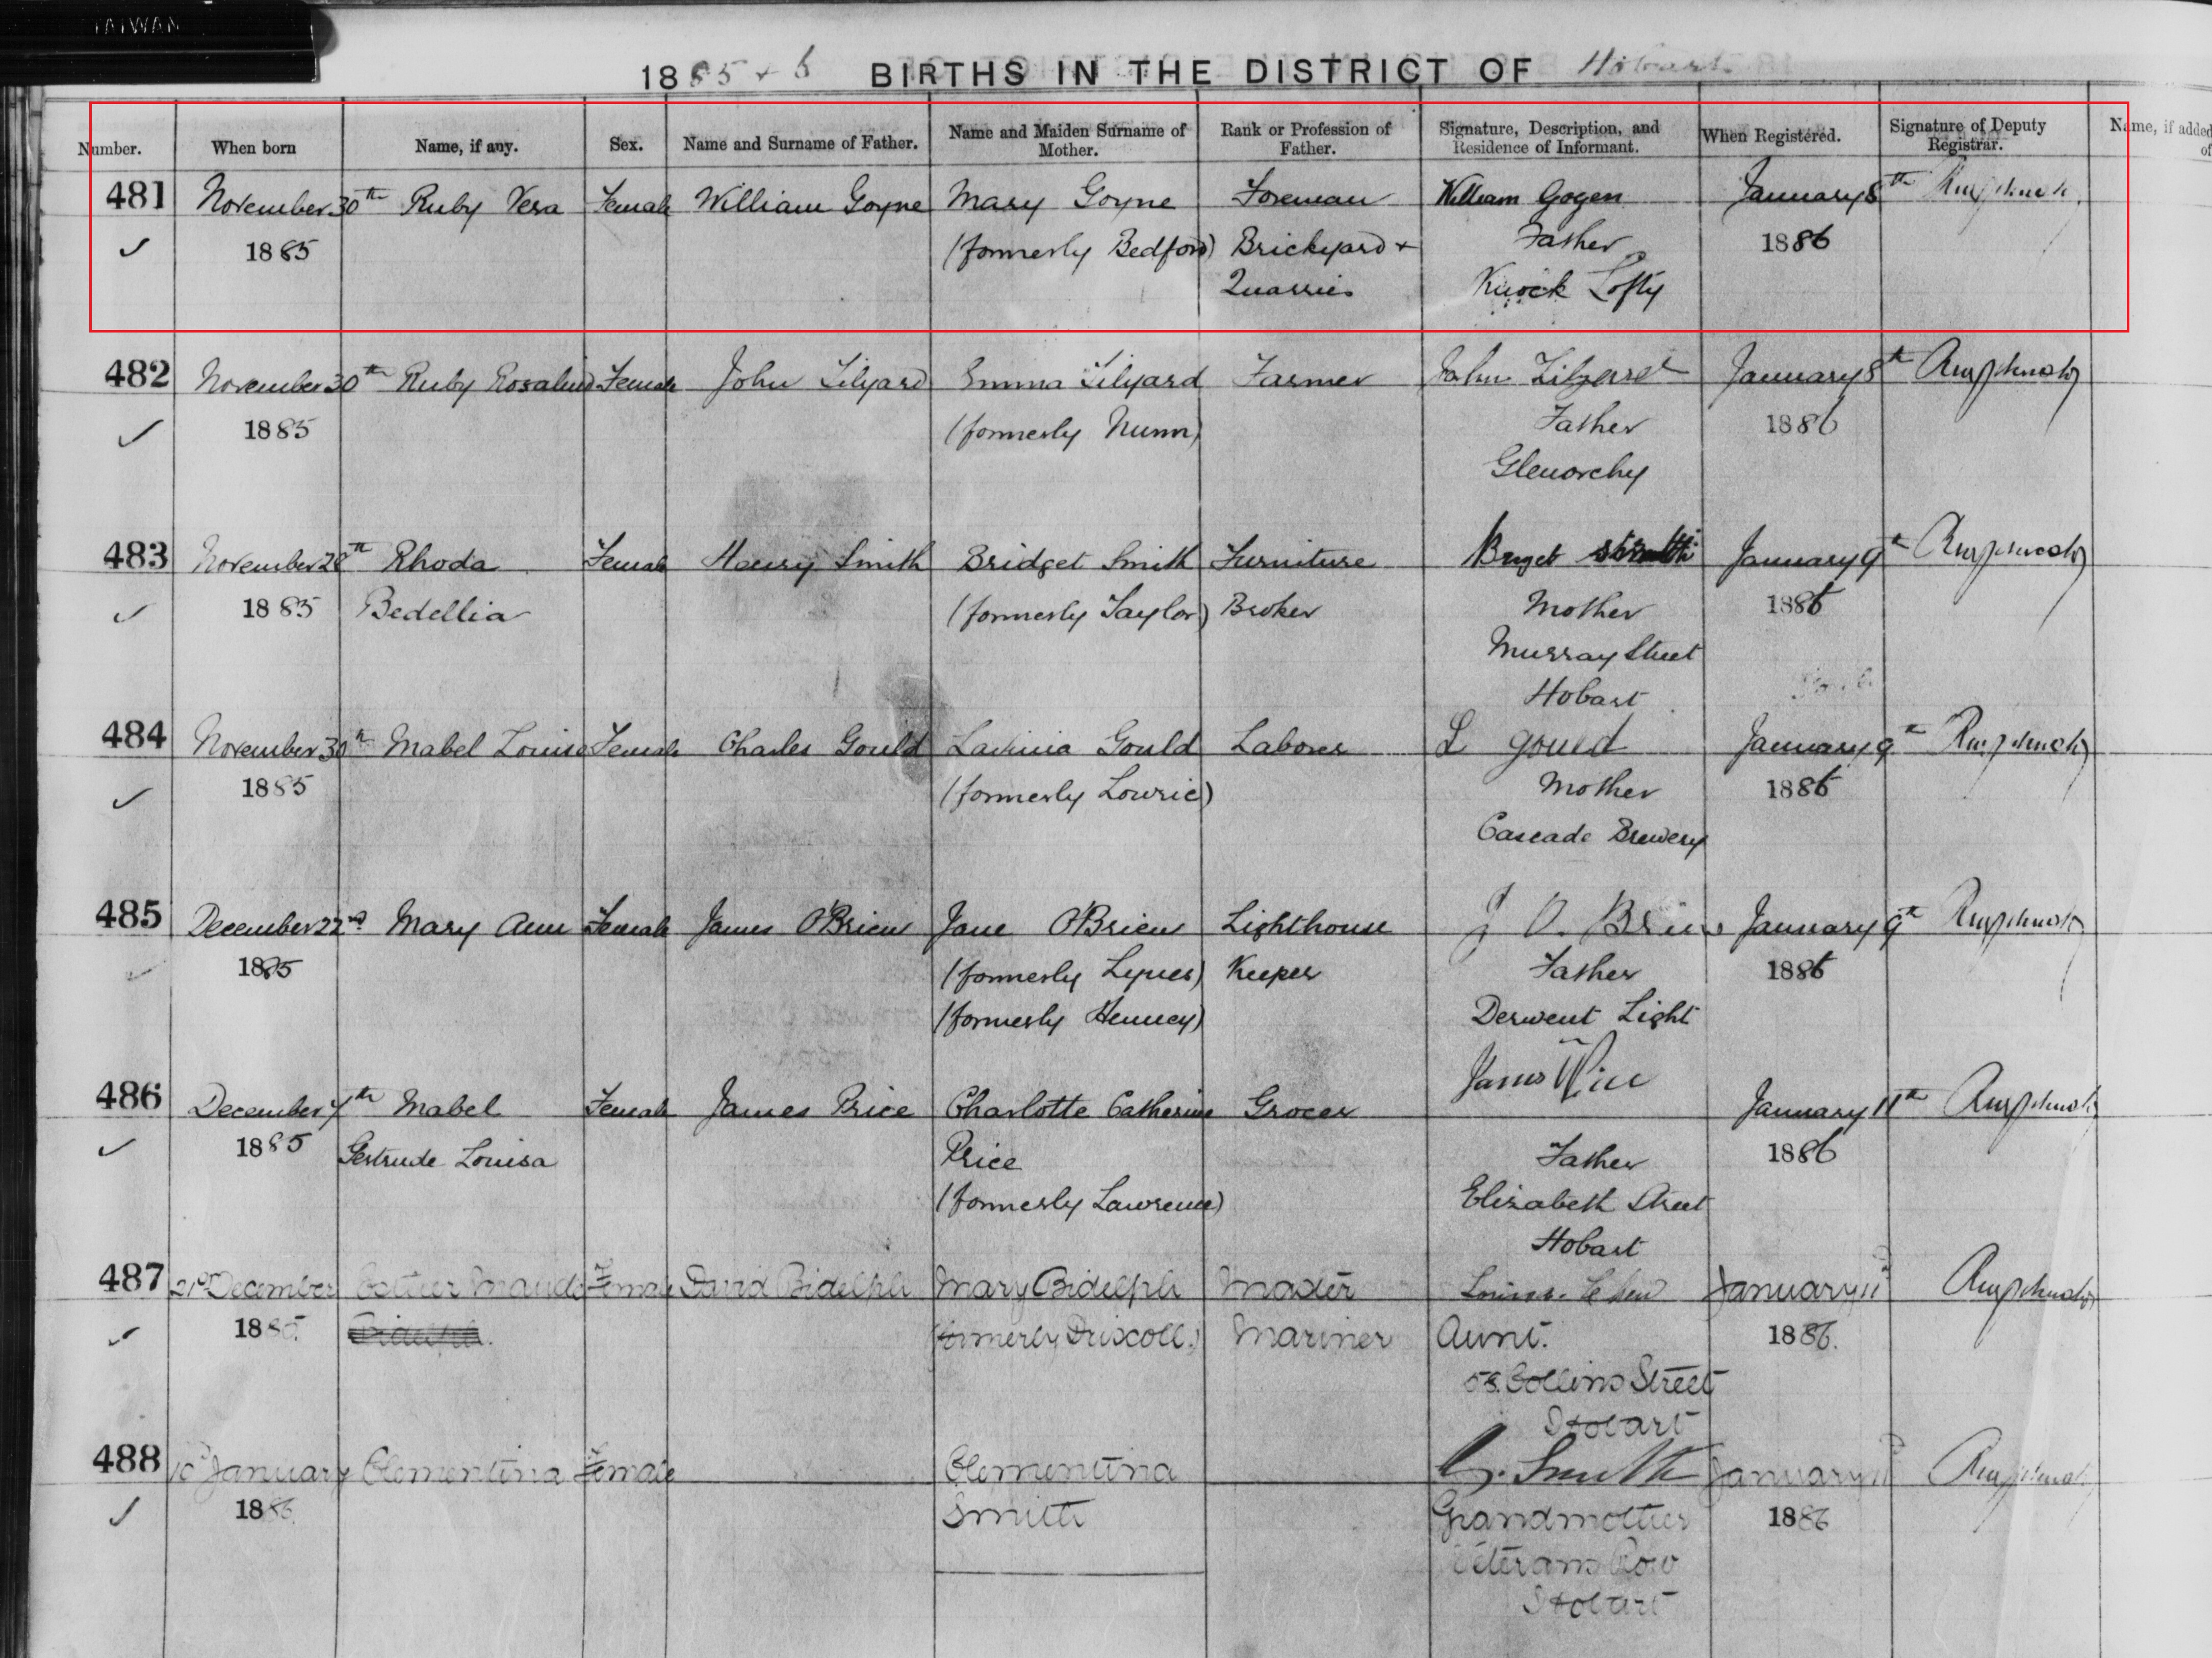 TAIWAN
1885 + 6 BIRTHS IN THE DISTRICT OF Hobart
Number. When born Name, if any. Sex. Name and Surname of Father. Name and Maiden Surname of Mother. Rank or Profession of Father. Signature, Description, and Residence of Informant. When Registered. Signature of Deputy Registrar. Name, if added
481 November 30th Ruby Vera Female William Goyne Mary Goyne Foreman William Gogen January 8th
✓ 1885 (formerly Bedford) Brickyard + Father 1886
Quarries Knock Lofty
482 November 30th Ruby Rosalind Female John Tilyard Emma Tilyard Farmer John Tilyard January 8th
✓ 1885 (formerly Nunn) Father 1886
Glenorchy
483 November 28th Rhoda Female Henry Smith Bridget Smith Furniture January 9th
✓ 1885 Bedellia (formerly Taylor) Broker Mother 1886
Murray Street
Hobart
484 November 30th Mabel Louisa Female Charles Gould Lavinia Gould Laborer L gould January 9th
✓ 1885 (formerly Lowrie) Mother 1886
Cascade Brewery
485 December 22nd Mary Ann Female James O'Brien Jane O'Brien Lighthouse J O. Brien January 9th
✓ 1885 (formerly Lynes) Keeper Father 1886
(formerly Henney) Derwent Light
486 December 4th Mabel Female James Price Charlotte Catherine Grocer James Price January 11th
✓ 1885 Gertrude Louisa Price Father 1886
(formerly Lawrence) Elizabeth Street
Hobart
487 21st December Esther Maude Female David Bidelph Mary Bidelph Master Louisa January 11th
✓ 1885. (formerly Driscoll.) Mariner Aunt. 1886.
58. Collins Street
Hobart
488 10th January Clementina Female Clementina C. Smith January 11th
✓ 1886. Smith Grandmother 1886
Veterans Row
Hobart